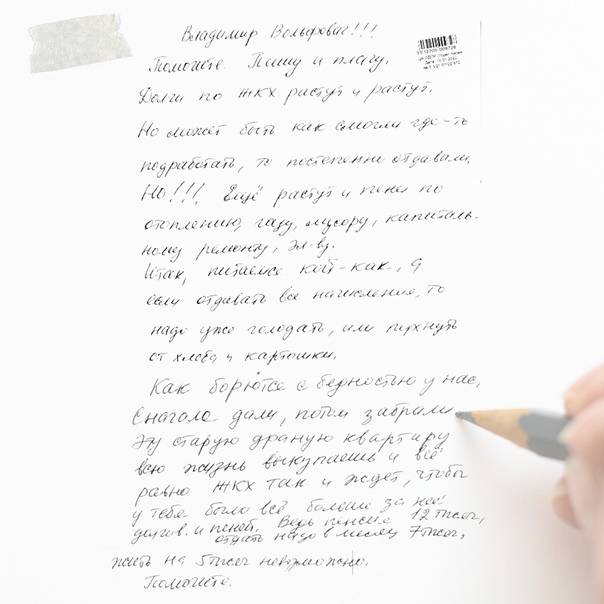 Владимир Вольфович!!!
Помогите. Пишу и плачу.
Долги по ЖКХ растут и растут.
Но может быть как смогли где-то
подработать, то постепенно отдавали.
Но!!!. Ещё растут и пени по
отоплению, газу, мусору, капиталь-
ному ремонту, Эл-ву.
Итак, питаемся кой-как, а
если отдавать все начисления, то
надо уже голодать, или пухнуть
от хлеба и картошки.
Как борются с бедностью у нас,
Сначала дали, потом забрали
Эту старую драную квартиру
всю жизнь выкупаешь и всё
равно ЖКХ так и ждёт, чтобы
у тебя было всё больше за неё
долгов. и пеней. Ведь пенсия 12 тысяч,
отдать надо в месяц 7 тысяч,
жить на 5 тысяч невозможно.
Помогите.